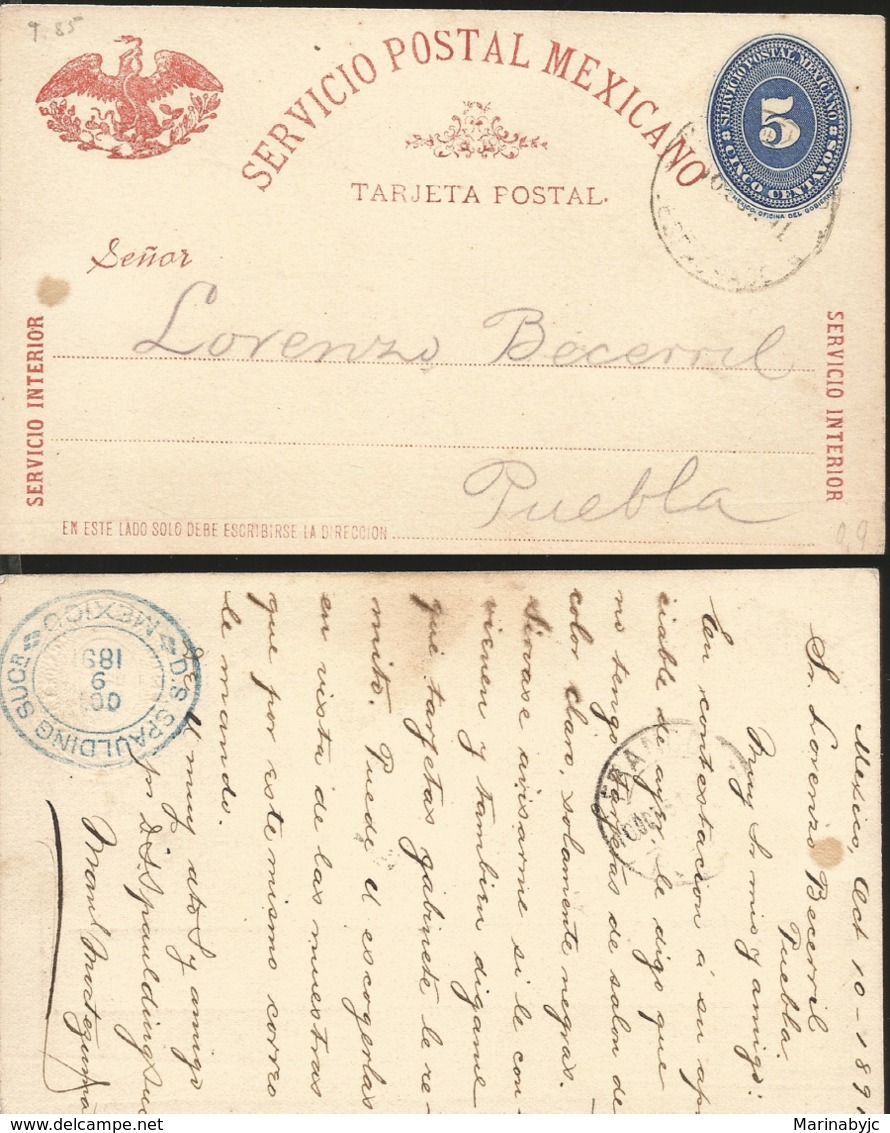 9.85
SERVICIO POSTAL MEXICANO
TARJETA POSTAL.
SERVICIO POSTAL MEXICANO
5
CINCO CENTAVOS
Señor
Lorenzo Becerril
Puebla
SERVICIO INTERIOR
SERVICIO INTERIOR
EN ESTE LADO SOLO DEBE ESCRIBIRSE LA DIRECCION
Mexico, Oct 10-189
Sr. Lorenzo Becerril
Puebla.
Muy Sr mio y amigo:
En contestacion á su apre
ciable de ayer, le digo que
no tengo tarjetas de salon de
color claro, solamente negras.
Sirvase avisarme si le con-
vienen y tambien digame
que tarjetas gabinete le re-
mito. Puede U escogerlas
en vista de las muestras
que por este mismo correo
le mando.
muy ato S y amigo
pr D. S. Spaulding Suc
D.S. SPAULDING SUCR
MEXICO
OCT
9
1891
Marinabyjc